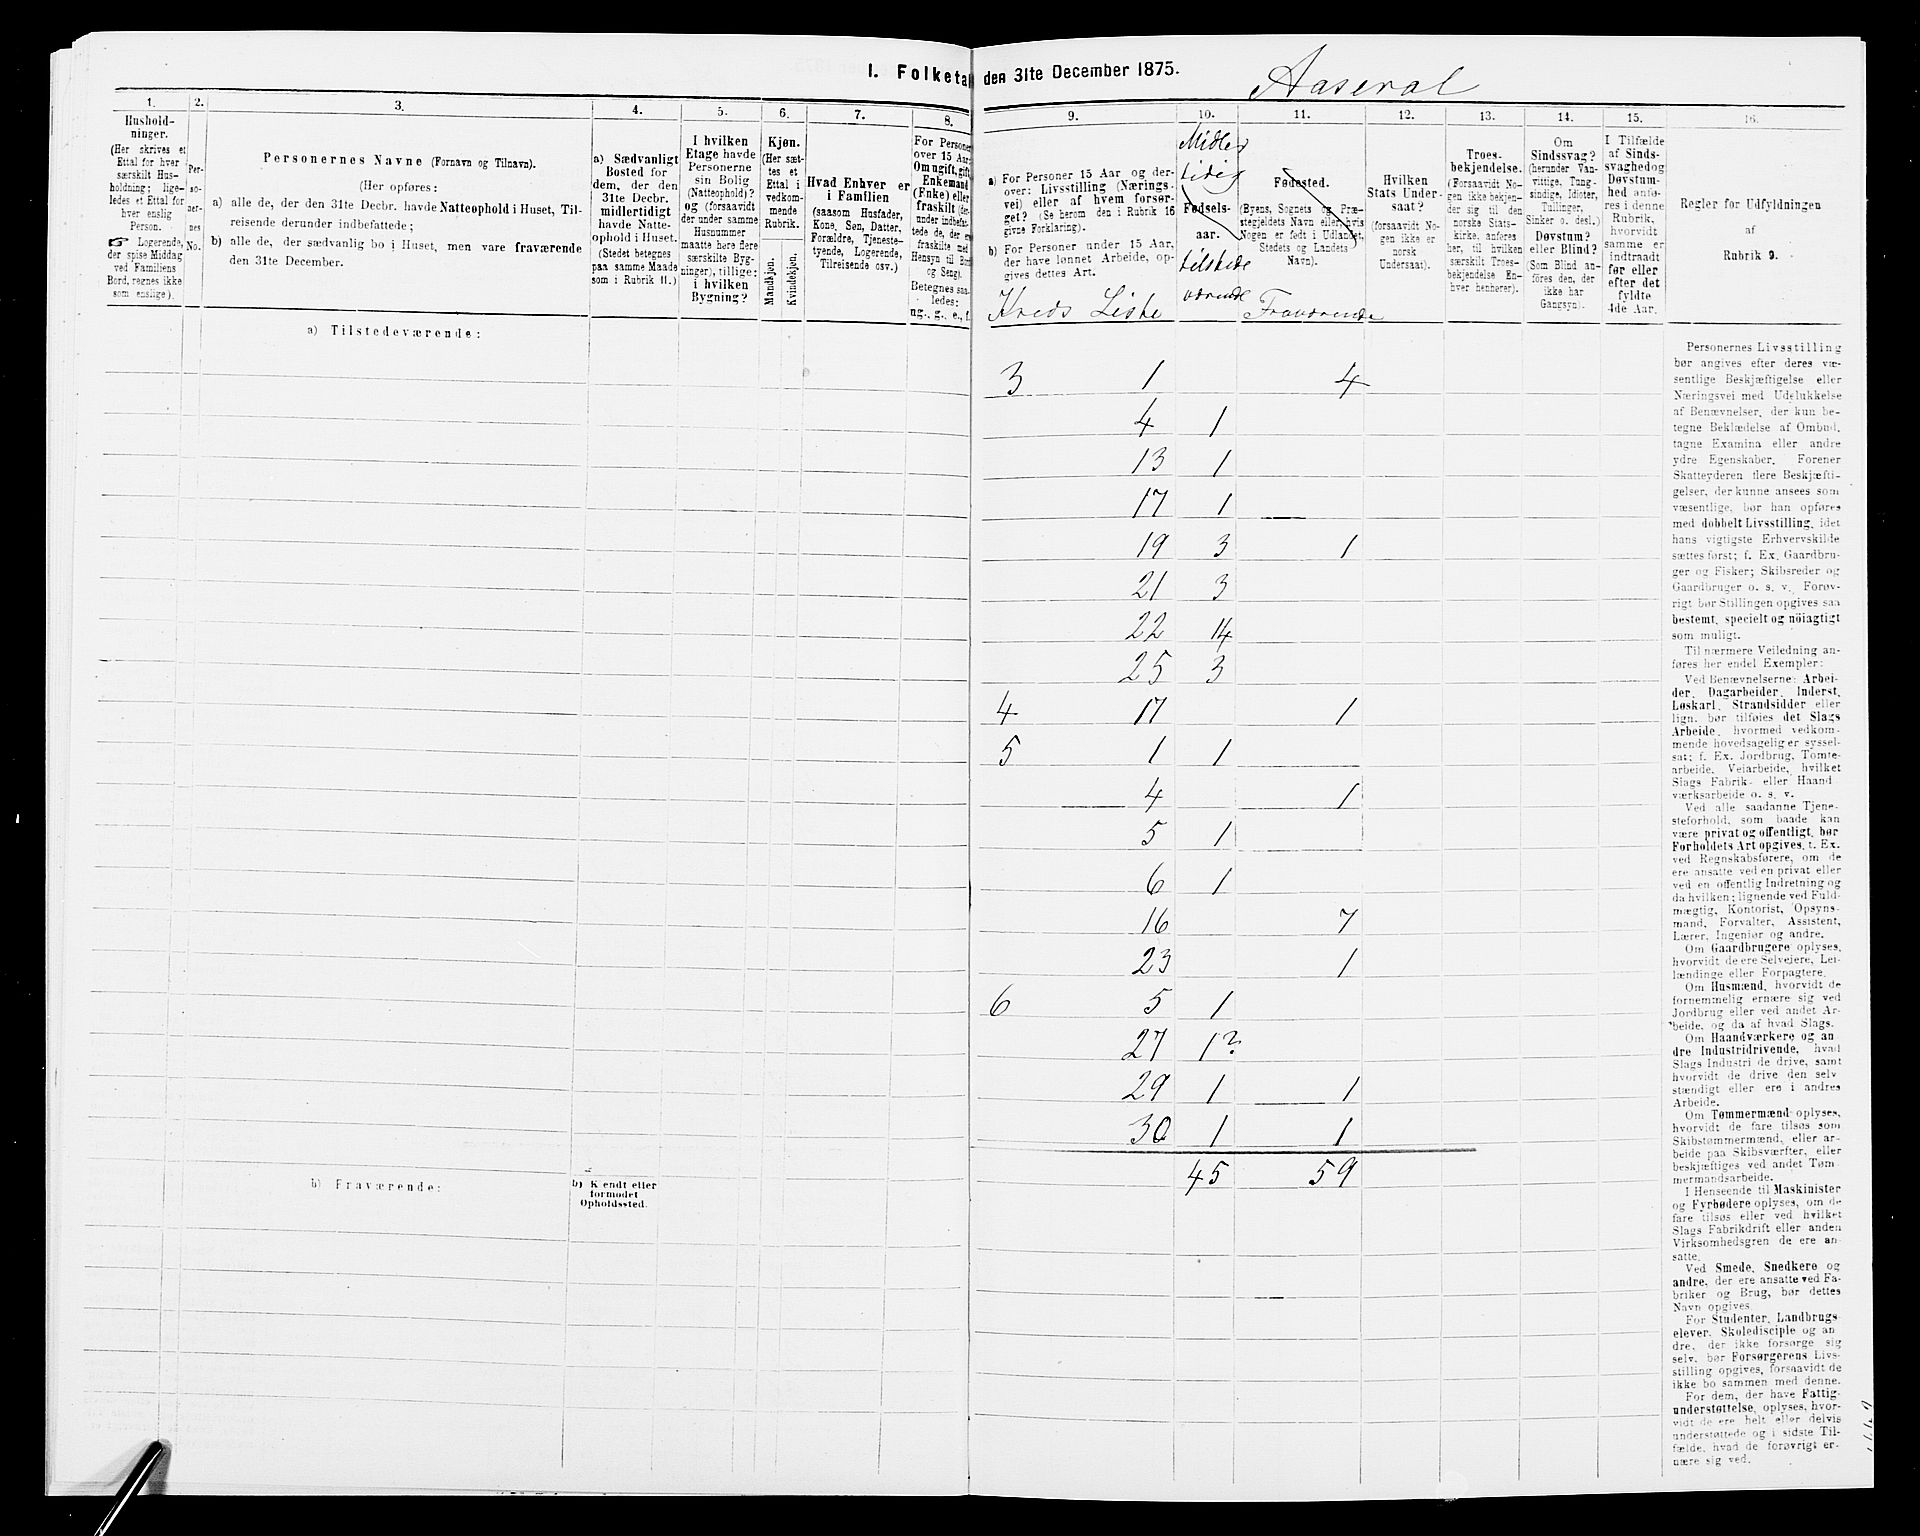 I. Folketal den 31te December 1875.
Aaseral
1.
Hushold-
ninger.
(Her skrives et
Ettal for hver
særskilt Hus-
holdning; lige-
ledes et Ettal for
hver enslig
Person.
☞ Logerende,
der spise Middag
ved Familiens
Bord, regnes ikke
som enslige).
2.
Per-
so-
ner-
nes
No.
3.
Personernes Navne (Fornavn og Tilnavn).
(Her opføres:
a) alle de, der den 31te Decbr. havde Natteophold i Huset, Til-
reisende derunder indbefattede;
b) alle de, der sædvanlig bo i Huset, men vare fraværende
den 31te December.
4.
a) Sædvanligt
Bosted for
dem, der den
31te Decbr.
midlertidigt
havde Natte-
ophold i Huset.
(Stedet betegnes
paa samme Maade
som i Rubrik 11.)
5.
I hvilken
Etage havde
Personerne
sin Bolig
(Natteophold)?
og (forsaavidt
der under samme
Husnummer
maatte høre flere
særskilte Byg-
ninger), tillige:
i hvilken
Bygning?
6.
Kjøn.
(Her sæt-
tes et
Ettal i
vedkom-
mende
Rubrik.
Mandkjøn.
Kvindekjøn.
7.
Hvad Enhver er
i Familien
(saasom Husfader,
Kone, Søn, Datter,
Forældre, Tjeneste-
tyende, Logerende,
Tilreisende osv.)
8.
For Personer
over 15 Aar:
Om ugift, gift,
Enkemand
(Enke) eller
fraskilt (der-
under indbefat-
tede de, der ere
fraskilte med
Hensyn til Bord
og Seng).
Betegnes saa-
ledes:
ug., g., e., f.
9.
a) For Personer 15 Aar og der-
over: Livsstilling (Nærings-
vei) eller af hvem forsør-
get? (Se herom den i Rubrik 16
givne Forklaring).
b) For Personer under 15 Aar,
der have lønnet Arbeide, op-
gives dettes Art.
Kreds Liste
10.
Midler
tidig
Fødsels-
aar.
tilstede
værende
11.
Fødested.
(Byens, Sognets og Præ-
stegjeldets Navn eller, hvis
Nogen er født i Udlandet,
Stedets og Landets
Navn).
Fraværende
12.
Hvilken
Stats Under-
saat?
(forsaavidt No-
gen ikke er
norsk
Undersaat).
13.
Troes-
bekjendelse.
(Forsaavidt No-
gen ikke bekjen-
der sig til den
norske Stats-
kirke, anføres
her, til hvilken
særskilt Troes-
bekjendelse En-
hver henhører).
14.
Om
Sindssvag?
(herunder Van-
vittige, Tung-
sindige, Idioter,
Tullinger,
Sinker o. desl.)
Døvstum?
eller Blind?
(Som Blind an-
føres den, der
ikke har
Gangsyn).
15.
I Tilfælde
af Sinds-
svaghed og
Døvstum-
hed anfø-
res i denne
Rubrik,
hvorvidt
samme er
indtraadt
før eller
efter det
fyldte
4de Aar.
16.
Regler for Udfyldningen
af
Rubrik 9.
a) Tilstedeværende:
3 1 4
4 1
13 1
17 1
19 3 1
21 3
22 14
25 3
4 17 1
5 1 1
4 1
5 1
6 1
16 7
23 1
6 5 1
27 1?
29 1 1
30 1 1
45 59
b) Fraværende:
b) Kjendt eller
formodet
Opholdssted.
Personernes Livsstilling
bør angives efter deres væ-
sentlige Beskjæftigelse eller
Næringsvei med Udelukkelse
af Benævnelser, der kun be-
tegne Beklædelse af Ombud,
tagne Examina eller andre
ydre Egenskaber. Forener
Skatteyderen flere Beskjæfti-
gelser, der kunne ansees som
væsentlige, bør han opføres
med dobbelt Livsstilling, idet
hans vigtigste Erhvervskilde
sættes først; f. Ex. Gaardbru-
ger og Fisker; Skibsreder og
Gaardbruger o. s. v. Forøv-
rigt bør Stillingen opgives saa
bestemt, specielt og nöiagtigt
som muligt.
Til nærmere Veiledning an-
føres her endel Exempler:
Ved Benævnelserne: Arbei-
der, Dagarbeider, Inderst,
Løskarl, Strandsidder eller
lign. bør tilføies det Slags
Arbeide, hvormed vedkom-
mende hovedsagelig er syssel-
sat; f. Ex. Jordbrug, Tomte-
arbeide, Veiarbeide, hvilket
Slags Fabrik- eller Haand
værksarbeide o. s. v.
Ved alle saadanne Tjene-
steforhold, som baade kan
være privat og offentligt, bør
Forholdets Art opgives, f. Ex.
ved Regnskabsførere, om de
ere ansatte ved en privat eller
ved en offentlig Indretning og
da hvilken; lignende ved Fuld-
mægtig, Kontorist, Opsyns-
mand, Forvalter, Assistent,
Lærer, Ingeniør og andre.
Om Gaardbrugere oplyses,
hvorvidt de ere Selveiere, Lei-
lændinge eller Forpagtere.
Om Husmænd, hvorvidt de
fornemmelig ernære sig ved
Jordbrug eller ved andet Ar-
beide, og da af hvad Slags.
Om Haandværkere og an
dre Industridrivende, hvad
Slags Industri de drive, samt
hvorvidt de drive den selv
stændigt eller ere i andres
Arbeide.
Om Tømmermænd oplyses,
hvorvidt de fare tilsøs som
Skibstømmermænd, eller ar-
beide paa Skibsværfter, eller
beskjæftiges ved andet Tøm
mermandsarbeide.
I Henseende til Maskinister
og Fyrbødere oplyses, om de
fare tilsøs eller ved hvilket
Slags Fabrikdrift eller anden
Virksomhedsgren de ere an-
satte.
Ved Smede, Snedkere og
andre, der ere ansatte ved Fa-
briker og Brug, bør dettes
Navn opgives.
For Studenter, Landbrugs-
elever, Skoledisciple og an
dre, der ikke forsørge sig
selv, bør Forsørgerens Livs-
stilling opgives, forsaavidt de
ikke bo sammen med denne.
For dem, der have Fattig-
understøttelse, oplyses, hvor-
vidt de ere helt eller delvis
understøttede og i sidste Til-
fælde, hvad de forøvrigt er-
nære sig ved.